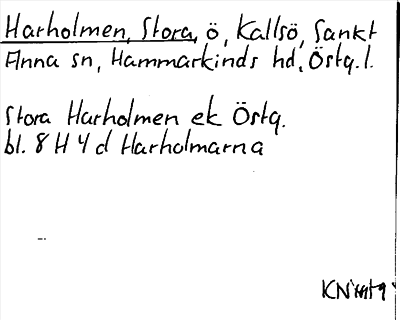 Harholmen, Stora, ö, Kallsö, Sankt
Anna sn, Hammarkinds hd, Östg. l.
Stora Harholmen ek Östg.
bl. 8 H 4 d Harholmarna